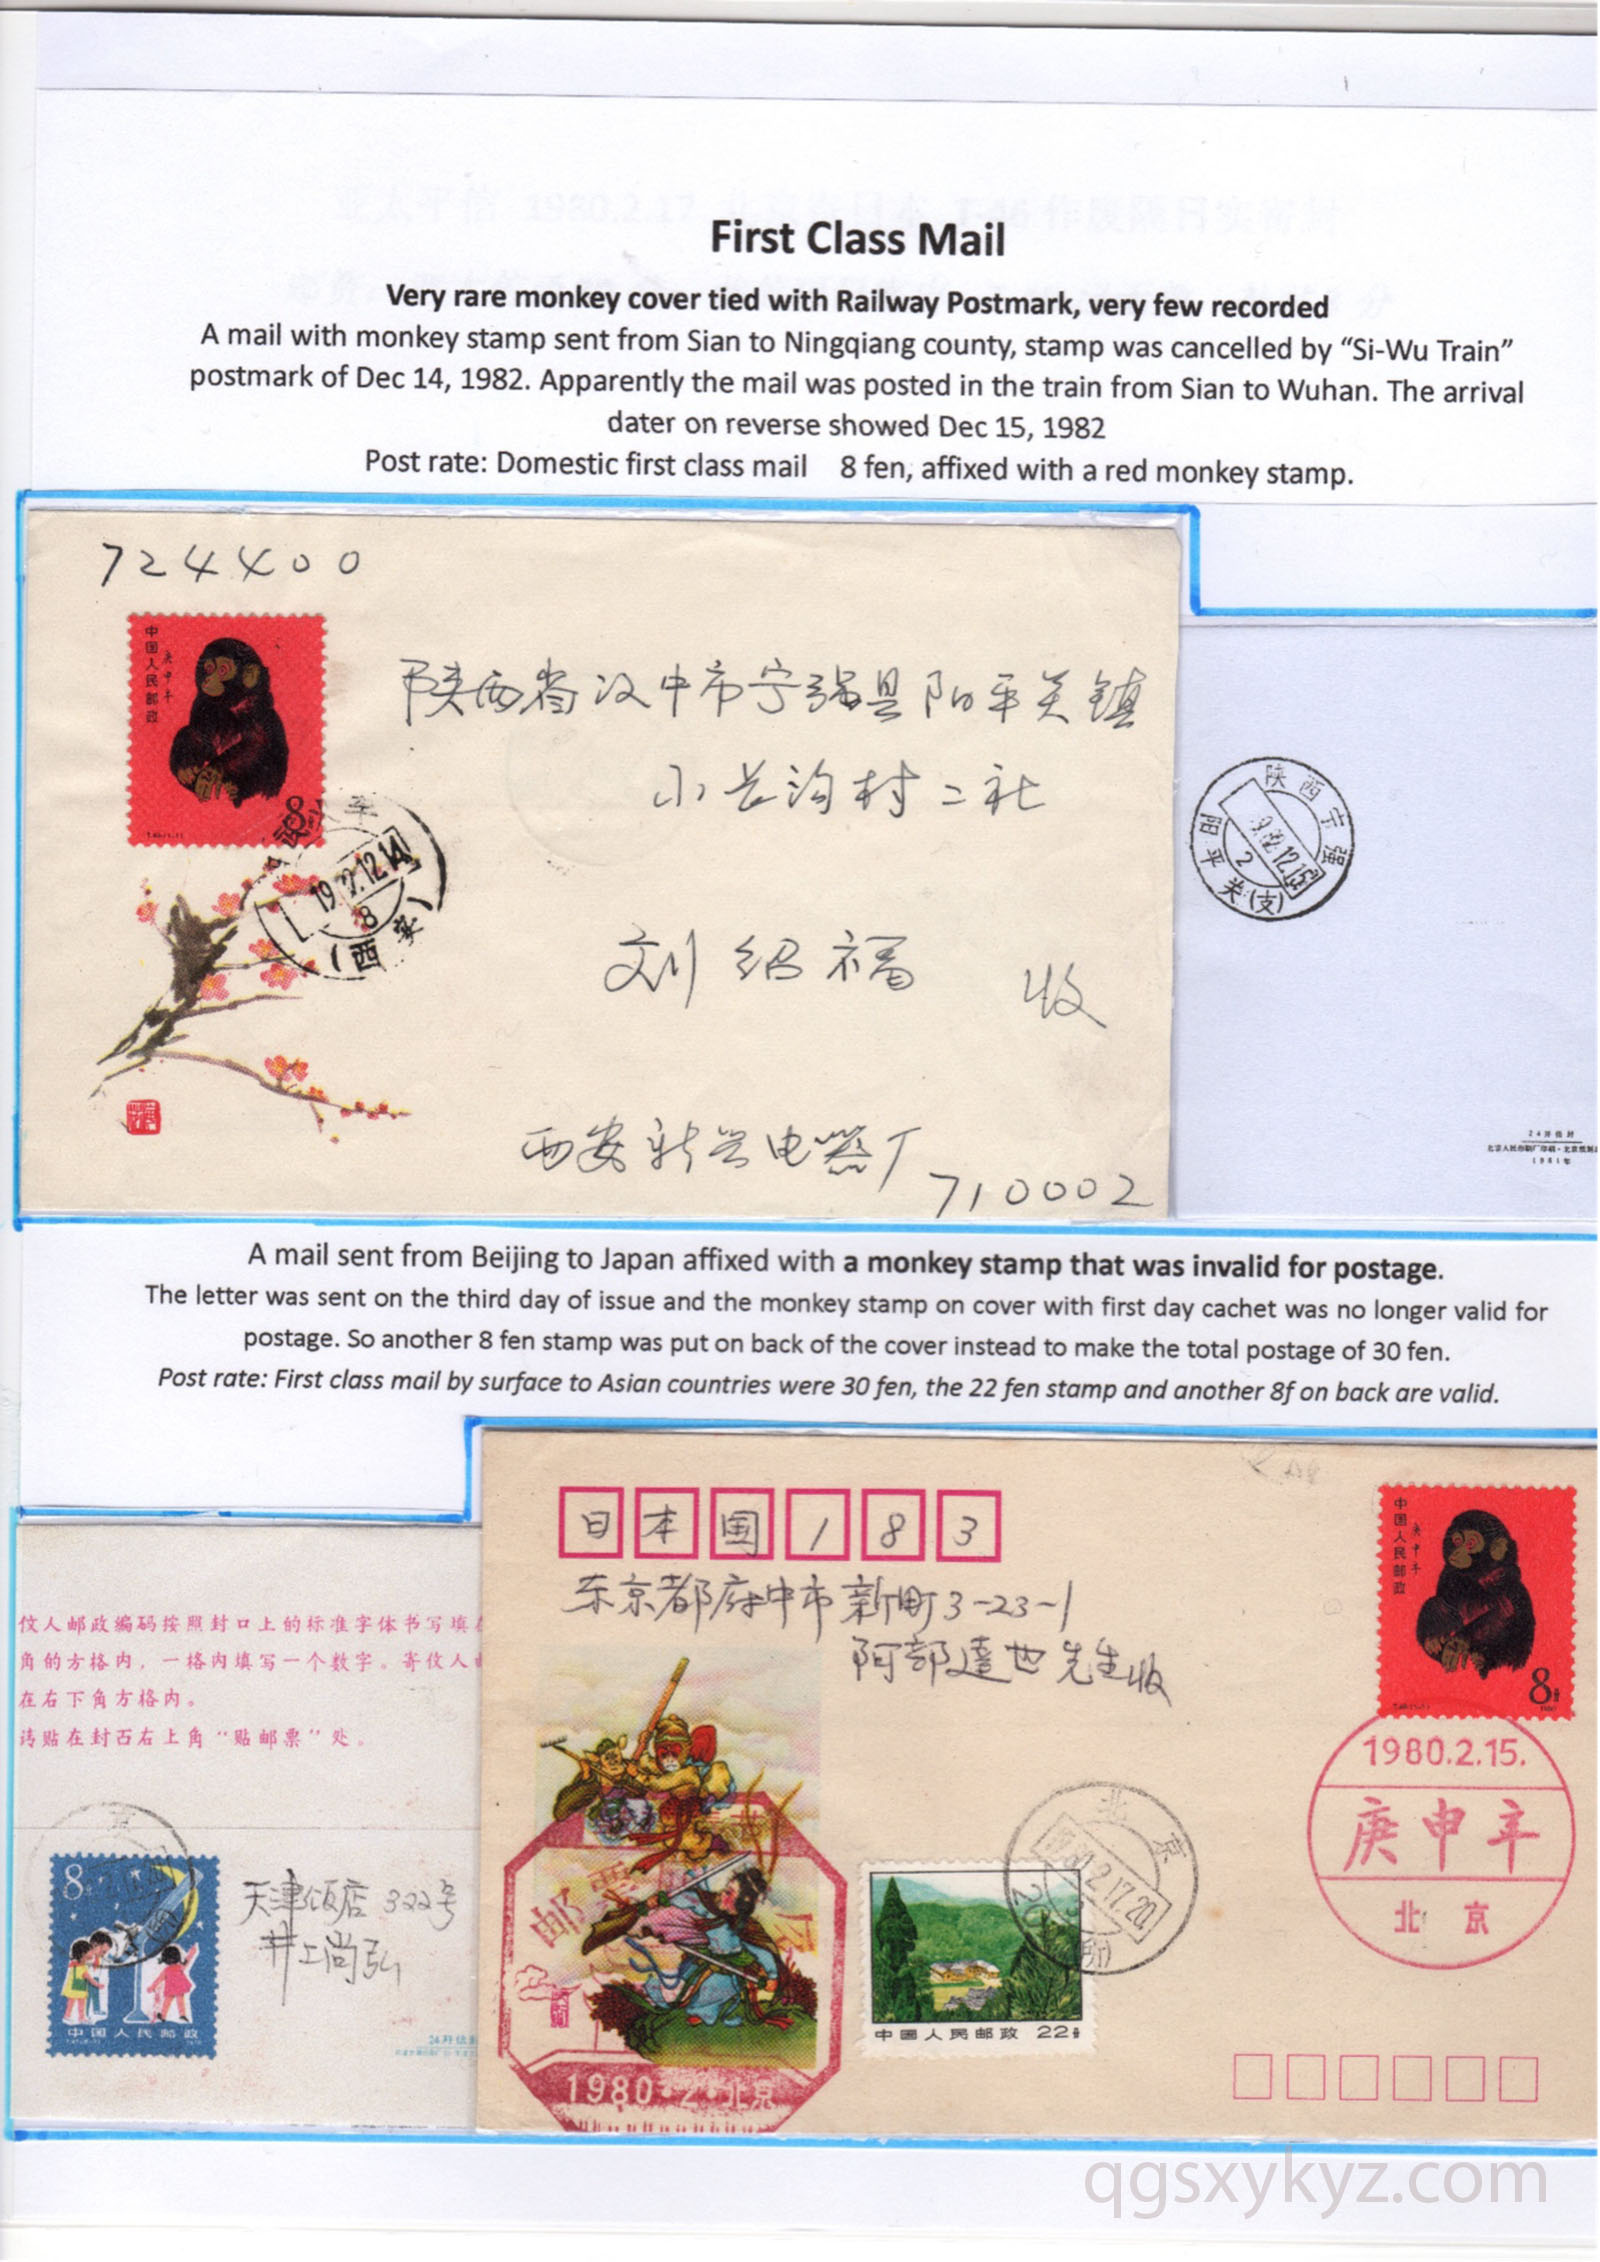 First Class Mail
Very rare monkey cover tied with Railway Postmark, very few recorded
A mail with monkey stamp sent from Sian to Ningqiang county, stamp was cancelled by “Si-Wu Train”
postmark of Dec 14, 1982. Apparently the mail was posted in the train from Sian to Wuhan. The arrival
dater on reverse showed Dec 15, 1982
Post rate: Domestic first class mail 8 fen, affixed with a red monkey stamp.
724400
中国人民邮政
庚申年
8
陕西省汉中市宁强县阳平关镇
小长沟村二社
刘绍福 收
西安新兴电器厂
710002
12.14
8
(西安)
陕西宁强
12.15
2
阳平关(支)
24开信封
1981年
A mail sent from Beijing to Japan affixed with a monkey stamp that was invalid for postage.
The letter was sent on the third day of issue and the monkey stamp on cover with first day cachet was no longer valid for
postage. So another 8 fen stamp was put on back of the cover instead to make the total postage of 30 fen.
Post rate: First class mail by surface to Asian countries were 30 fen, the 22 fen stamp and another 8f on back are valid.
伩人邮政编码按照封口上的标准字体书写填在
角的方格内，一格内填写一个数字。寄伩人
在右下角方格内。
请贴在封面右上角“贴邮票”处。
8
中国人民邮政
天津饭店 322号
井上尚弘
日本国183
东京都府中市新町3-23-1
阿部達也先生收
中国人民邮政
庚申年
8
1980.2.15.
庚申年
北京
北京
2.17.20
中国人民邮政 22
1980·2·北京
qgsxykyz.com